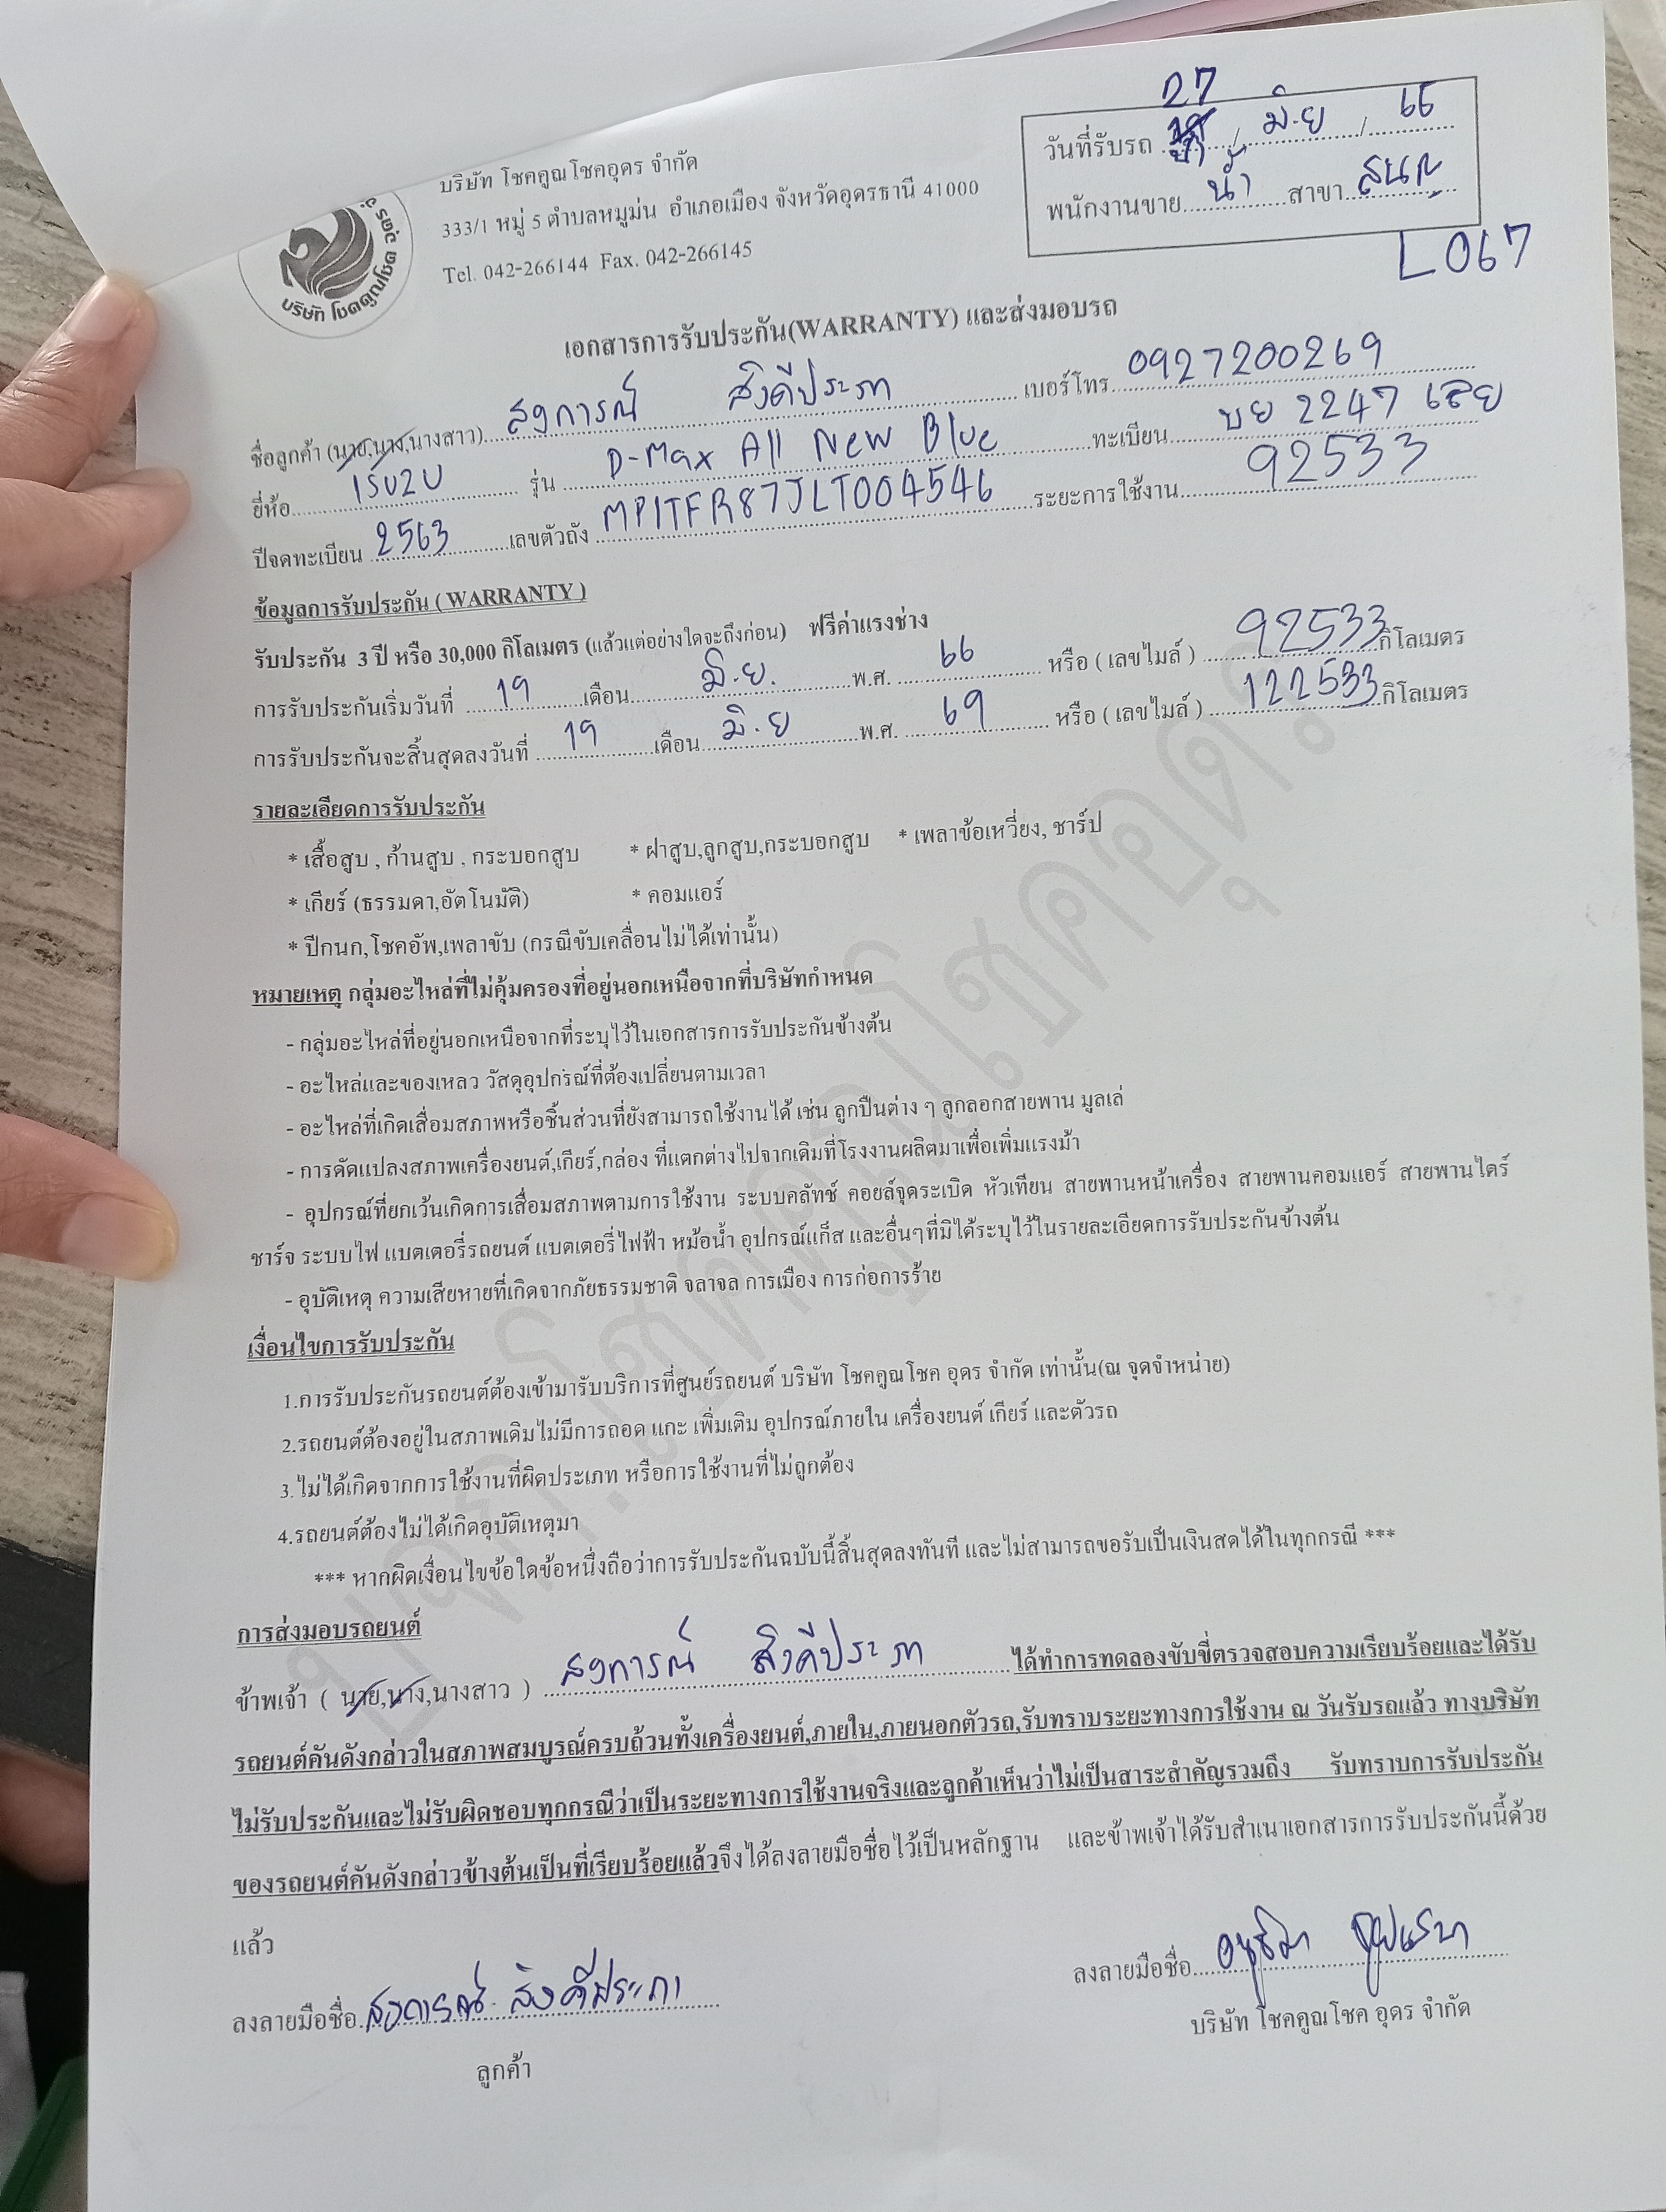 27
วันที่รับรถ / มิ.ย / 66
พนักงานขาย น้ำ สาขา
L067
บริษัท โชคคูณโชคอุดร จำกัด
333/1 หมู่ 5 ตำบลหมูม่น อำเภอเมือง จังหวัดอุดรธานี 41000
Tel. 042-266144 Fax. 042-266145
บริษัท โชคคูณโชค อุดร
เอกสารการรับประกัน(WARRANTY) และส่งมอบรถ
ชื่อลูกค้า (นาย,นาง,นางสาว) สงการณ์ สิงคีประภา เบอร์โทร 0927200269
ยี่ห้อ อีซูซุ รุ่น D-Max All New Blue ทะเบียน บย 2247 เลย
ปีจดทะเบียน 2563 เลขตัวถัง MP1TFR87JLT004546 ระยะการใช้งาน 92533
ข้อมูลการรับประกัน ( WARRANTY )
รับประกัน 3 ปี หรือ 30,000 กิโลเมตร (แล้วแต่อย่างใดจะถึงก่อน) ฟรีค่าแรงช่าง
การรับประกันเริ่มวันที่ 19 เดือน มิ.ย. พ.ศ. 66 หรือ ( เลขไมล์ ) 92533 กิโลเมตร
การรับประกันจะสิ้นสุดลงวันที่ 19 เดือน มิ.ย พ.ศ. 69 หรือ ( เลขไมล์ ) 122533 กิโลเมตร
รายละเอียดการรับประกัน
* เสื้อสูบ , ก้านสูบ , กระบอกสูบ * ฝาสูบ,ลูกสูบ,กระบอกสูบ * เพลาข้อเหวี่ยง, ชาร์ป
* เกียร์ (ธรรมดา,อัตโนมัติ) * คอมแอร์
* ปีกนก,โชคอัพ,เพลาขับ (กรณีขับเคลื่อนไม่ได้เท่านั้น)
หมายเหตุ กลุ่มอะไหล่ที่ไม่คุ้มครองที่อยู่นอกเหนือจากที่บริษัทกำหนด
- กลุ่มอะไหล่ที่อยู่นอกเหนือจากที่ระบุไว้ในเอกสารการรับประกันข้างต้น
- อะไหล่และของเหลว วัสดุอุปกรณ์ที่ต้องเปลี่ยนตามเวลา
- อะไหล่ที่เกิดเสื่อมสภาพหรือชิ้นส่วนที่ยังสามารถใช้งานได้ เช่น ลูกปืนต่าง ๆ ลูกลอกสายพาน มูลเล่
- การดัดแปลงสภาพเครื่องยนต์,เกียร์,กล่อง ที่แตกต่างไปจากเดิมที่โรงงานผลิตมาเพื่อเพิ่มแรงม้า
- อุปกรณ์ที่ยกเว้นเกิดการเสื่อมสภาพตามการใช้งาน ระบบคลัทช์ คอยล์จุดระเบิด หัวเทียน สายพานหน้าเครื่อง สายพานคอมแอร์ สายพานไดร์
ชาร์จ ระบบไฟ แบตเตอรี่รถยนต์ แบตเตอรี่ไฟฟ้า หม้อน้ำ อุปกรณ์แก็ส และอื่นๆที่มิได้ระบุไว้ในรายละเอียดการรับประกันข้างต้น
- อุบัติเหตุ ความเสียหายที่เกิดจากภัยธรรมชาติ จลาจล การเมือง การก่อการร้าย
เงื่อนไขการรับประกัน
1.การรับประกันรถยนต์ต้องเข้ามารับบริการที่ศูนย์รถยนต์ บริษัท โชคคูณโชค อุดร จำกัด เท่านั้น(ณ จุดจำหน่าย)
2.รถยนต์ต้องอยู่ในสภาพเดิมไม่มีการถอด แกะ เพิ่มเติม อุปกรณ์ภายใน เครื่องยนต์ เกียร์ และตัวรถ
3.ไม่ได้เกิดจากการใช้งานที่ผิดประเภท หรือการใช้งานที่ไม่ถูกต้อง
4.รถยนต์ต้องไม่ได้เกิดอุบัติเหตุมา
*** หากผิดเงื่อนไขข้อใดข้อหนึ่งถือว่าการรับประกันฉบับนี้สิ้นสุดลงทันที และไม่สามารถขอรับเป็นเงินสดได้ในทุกกรณี ***
การส่งมอบรถยนต์
ข้าพเจ้า ( นาย,นาง,นางสาว ) สงการณ์ สิงคีประภา ได้ทำการทดลองขับขี่ตรวจสอบความเรียบร้อยและได้รับ
รถยนต์คันดังกล่าวในสภาพสมบูรณ์ครบถ้วนทั้งเครื่องยนต์,ภายใน,ภายนอกตัวรถ,รับทราบระยะทางการใช้งาน ณ วันรับรถแล้ว ทางบริษัท
ไม่รับประกันและไม่รับผิดชอบทุกกรณีว่าเป็นระยะทางการใช้งานจริงและลูกค้าเห็นว่าไม่เป็นสาระสำคัญรวมถึง รับทราบการรับประกัน
ของรถยนต์คันดังกล่าวข้างต้นเป็นที่เรียบร้อยแล้วจึงได้ลงลายมือชื่อไว้เป็นหลักฐาน และข้าพเจ้าได้รับสำเนาเอกสารการรับประกันนี้ด้วย
แล้ว
ลงลายมือชื่อ สงการณ์ สิงคีประภา ลงลายมือชื่อ
ลูกค้า บริษัท โชคคูณโชค อุดร จำกัด